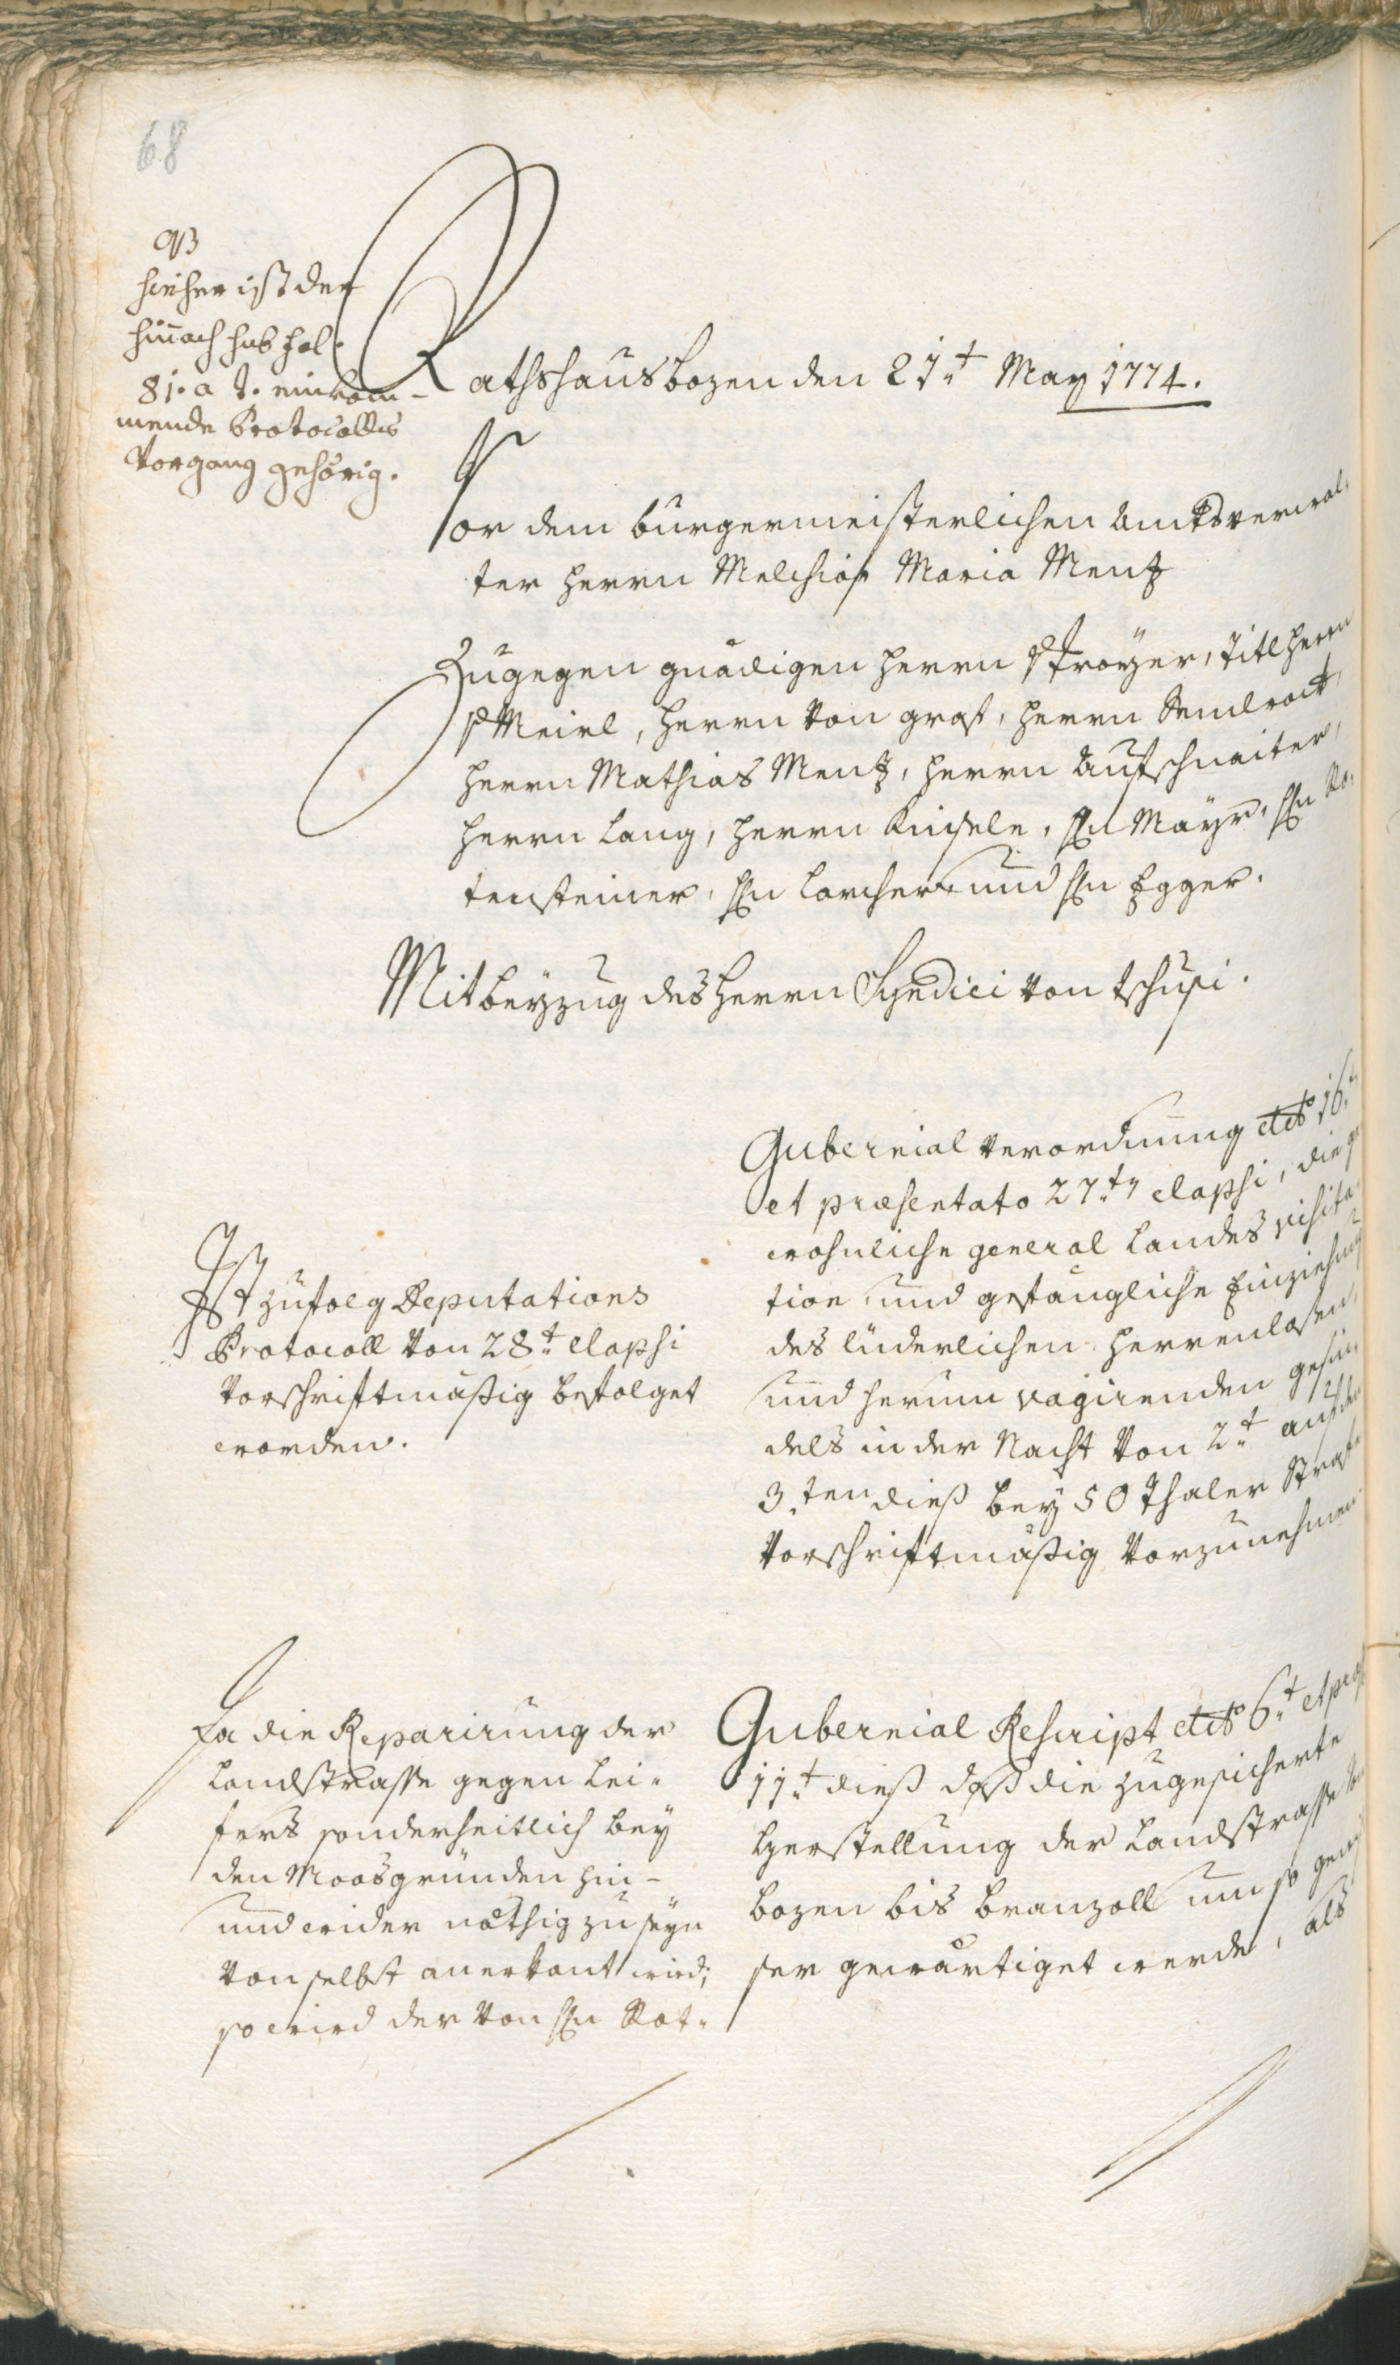 68
NB
hieher ist der
hinnach sub fol.
81. a t. einkom-
mende Protocolls
Vorgang gehörig.
Rathshaus Bozen den 21.t May 1774.
Vor dem burgermeisterlichen Amtsverwal-
ter Herrn Melchior Maria Menz
Zugegen gnädigen Herrn v Troyer, Titl Herrn
v Meirl, Herrn von Graf, Herrn
Herrn Mathias Menz, Herrn Aufschnaiter,
Herrn Lang, Herrn Kinsele, Hn Mayr, Hn Ro-
tensteiner, Hn Larcher und Hn Egger.
Mitbeyzug des Herrn Syndici von Tschusi.
Gubernial Verordnung ddto 16.t
et præsentato 27.t elapsi, die ge
wohnliche general Landes visita
tion und gefängliche Einziehung
des lüderlichen herrenlosen,
und herum vagirenden gesin-
dels in der Nacht von 2.t auf den
3.ten dieß bey 50 Thaler Straf
vorschriftmäßig vorzunehmen
Ist zufolg Deputations
Protocoll von 28.t elapsi
vorschriftmäßig befolget
worden.
Gubernial Rescript ddto 6.t et præs
11.t dieß daß die zugesicherte
Herstellung der Landstrasse von
Bozen bis Branzoll um so gewis
ser gewärtiget werde, als
Da die Reparirung der
Landstrasse gegen Lei-
fers sonderheitlich bey
den Moosgründen hin-
und wider nöthig zu seyn
von selbst anerkant wird;
so wird der von Hn Rot-